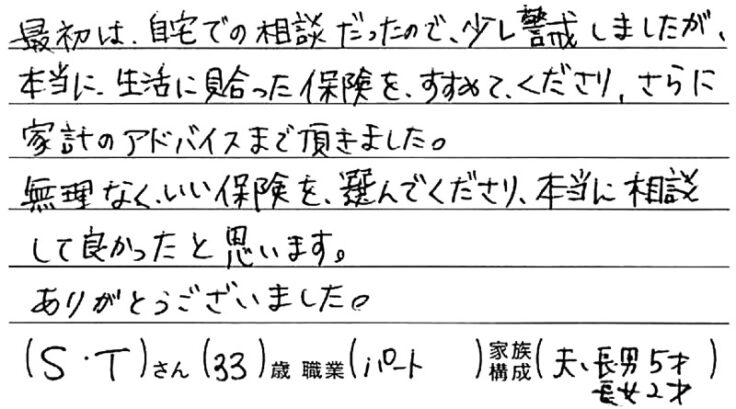 最初は、自宅での相談だったので、少し警戒しましたが、
本当に、生活に見合った保険を、すすめて、くださり、さらに
家計のアドバイスまで頂きました。
無理なく、いい保険を、選んでくださり、本当に相談
して良かったと思います。
ありがとうございました。
(S・T)さん(33)歳 職業(パート )家族構成(夫、長男5才
長女2才)